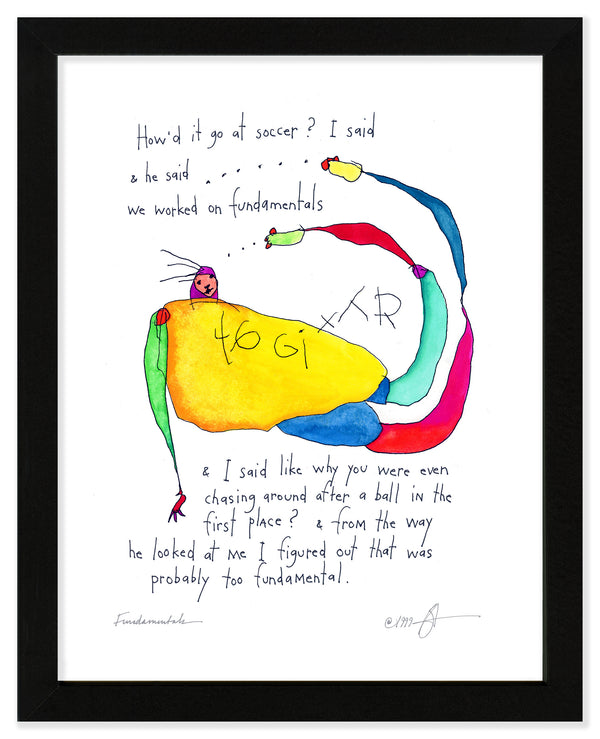 How'd it go at soccer? I said
& he said . . . . . . . .
we worked on fundamentals
. . . .
46 Gi x T R
& I said like why you were even
chasing around after a ball in the
first place? & from the way
he looked at me I figured out that was
probably too fundamental.
Fundamentals
©1999